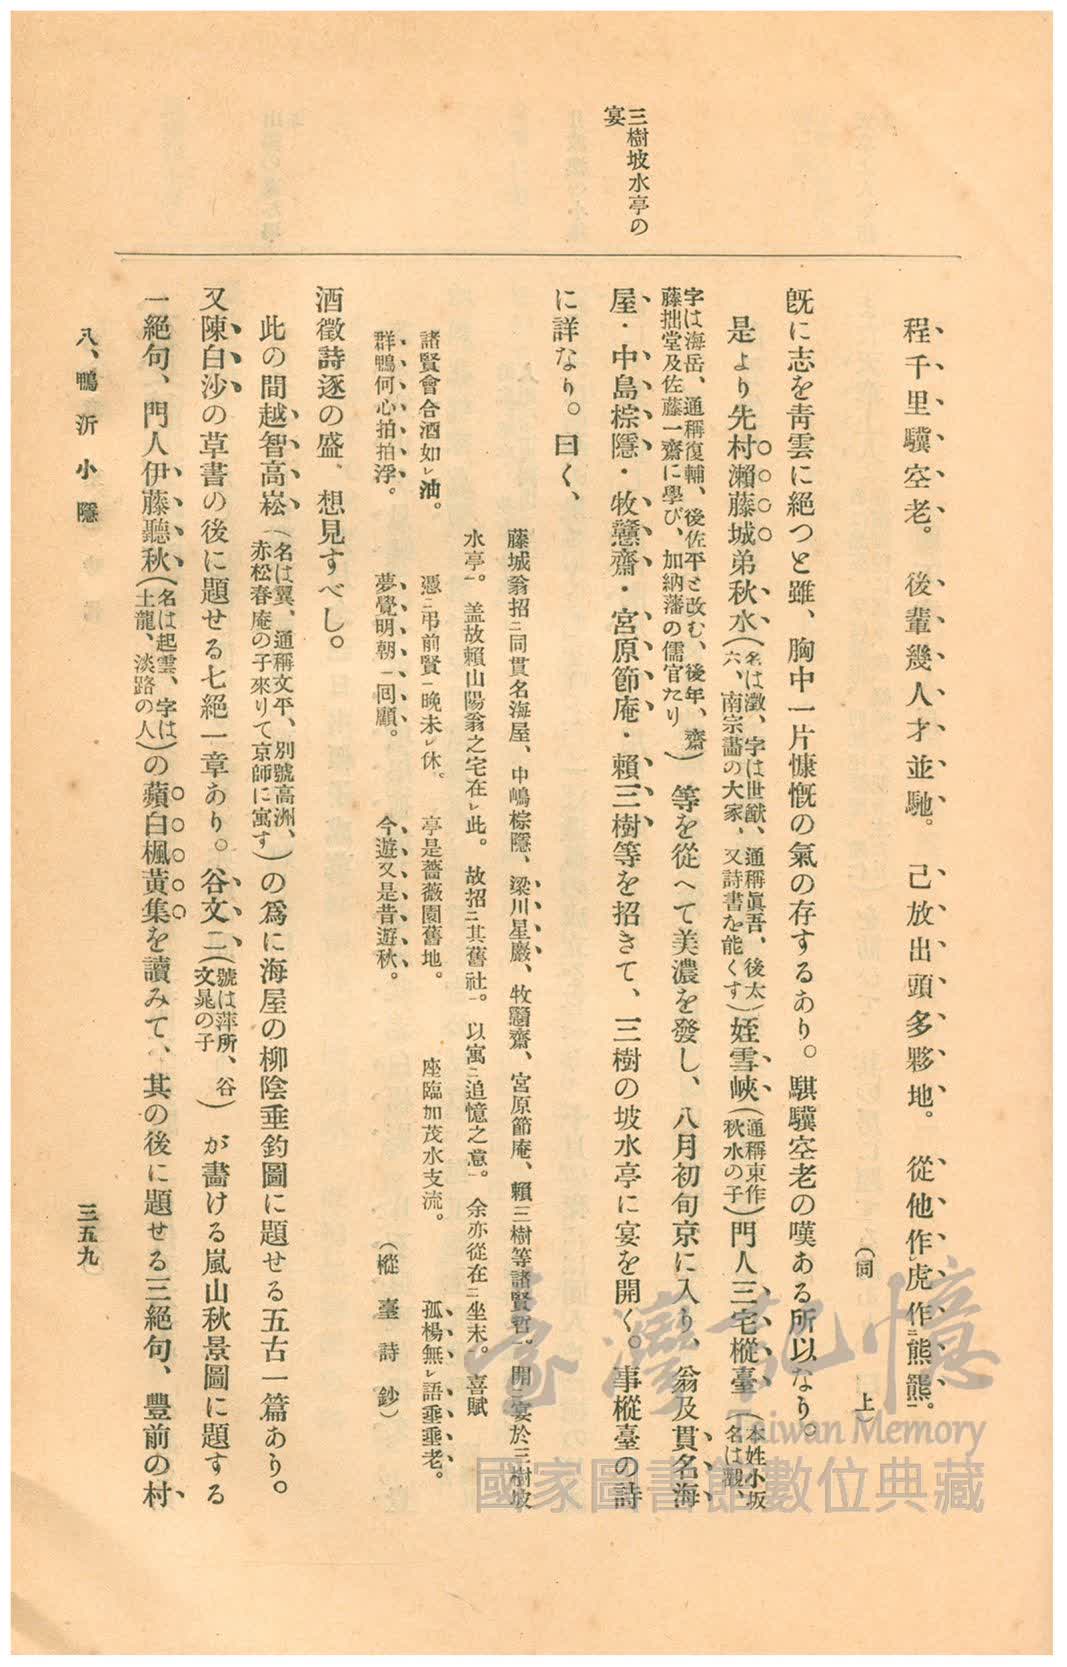 三樹坡水亭の
宴
程千里驥空老。後輩幾人才並馳。己放出頭多夥地。從他作レ虎作ニ熊羆一。
（同上）
既に志を靑雲に絕つと雖、胸中一片慷慨の氣の存するあり。騏驥空老の嘆ある所以なり。
是より先村瀨藤城弟秋水（名は徵、字は世猷、通稱眞吾、後太六、南宗畵の大家、又詩書を能くす）姪雪峽（通稱東作秋水の子）門人三宅樅臺（本姓小坂名は觀、
字は海岳、通稱復輔、後佐平と改む、後年、齋藤拙堂及佐藤一齋に學び、加納藩の儒官たり）等を從へて美濃を發し、八月初旬京に入り、翁及貫名海
屋・中島棕隱・牧戇齋・宮原節庵・賴三樹等を招きて、三樹の坡水亭に宴を開く。事樅臺の詩
に詳なり。曰く、
藤城翁招ニ同貫名海屋、中嶋棕隱、梁川星巖、牧戇齋、宮原節庵、賴三樹等諸賢哲一。開ニ宴於三樹坡
水亭一。盖故賴山陽翁之宅在レ此。故招ニ其舊社一。以寓ニ追憶之意一。余亦從在ニ坐末一。喜賦
諸賢會合酒如レ油。憑ニ弔前賢一晚未レ休。亭是薔薇園舊地。座臨加茂水支流。孤楊無レ語垂垂老。
群鴨何心拍拍浮。夢覺明朝一回顧。今遊又是昔遊秋。（樅臺詩鈔）
酒徵詩逐の盛、想見すべし。
此の間越智高崧（名は翼、通稱文平、別號高洲、赤松春庵の子來りて京師に寓す）の爲に海屋の柳陰垂釣圖に題せる五古一篇あり。
又陳白沙の草書の後に題せる七絕一章あり。谷文二（號は萍所、谷文晁の子）が畵ける嵐山秋景圖に題する
一絕句、門人伊藤聽秋（名は起雲、字は士龍、淡路の人）の蘋白楓黃集を讀みて、其の後に題せる三絕句、豐前の村
八、鴨沂小隱
三五九
臺灣記憶
Taiwan Memory
國家圖書館數位典藏